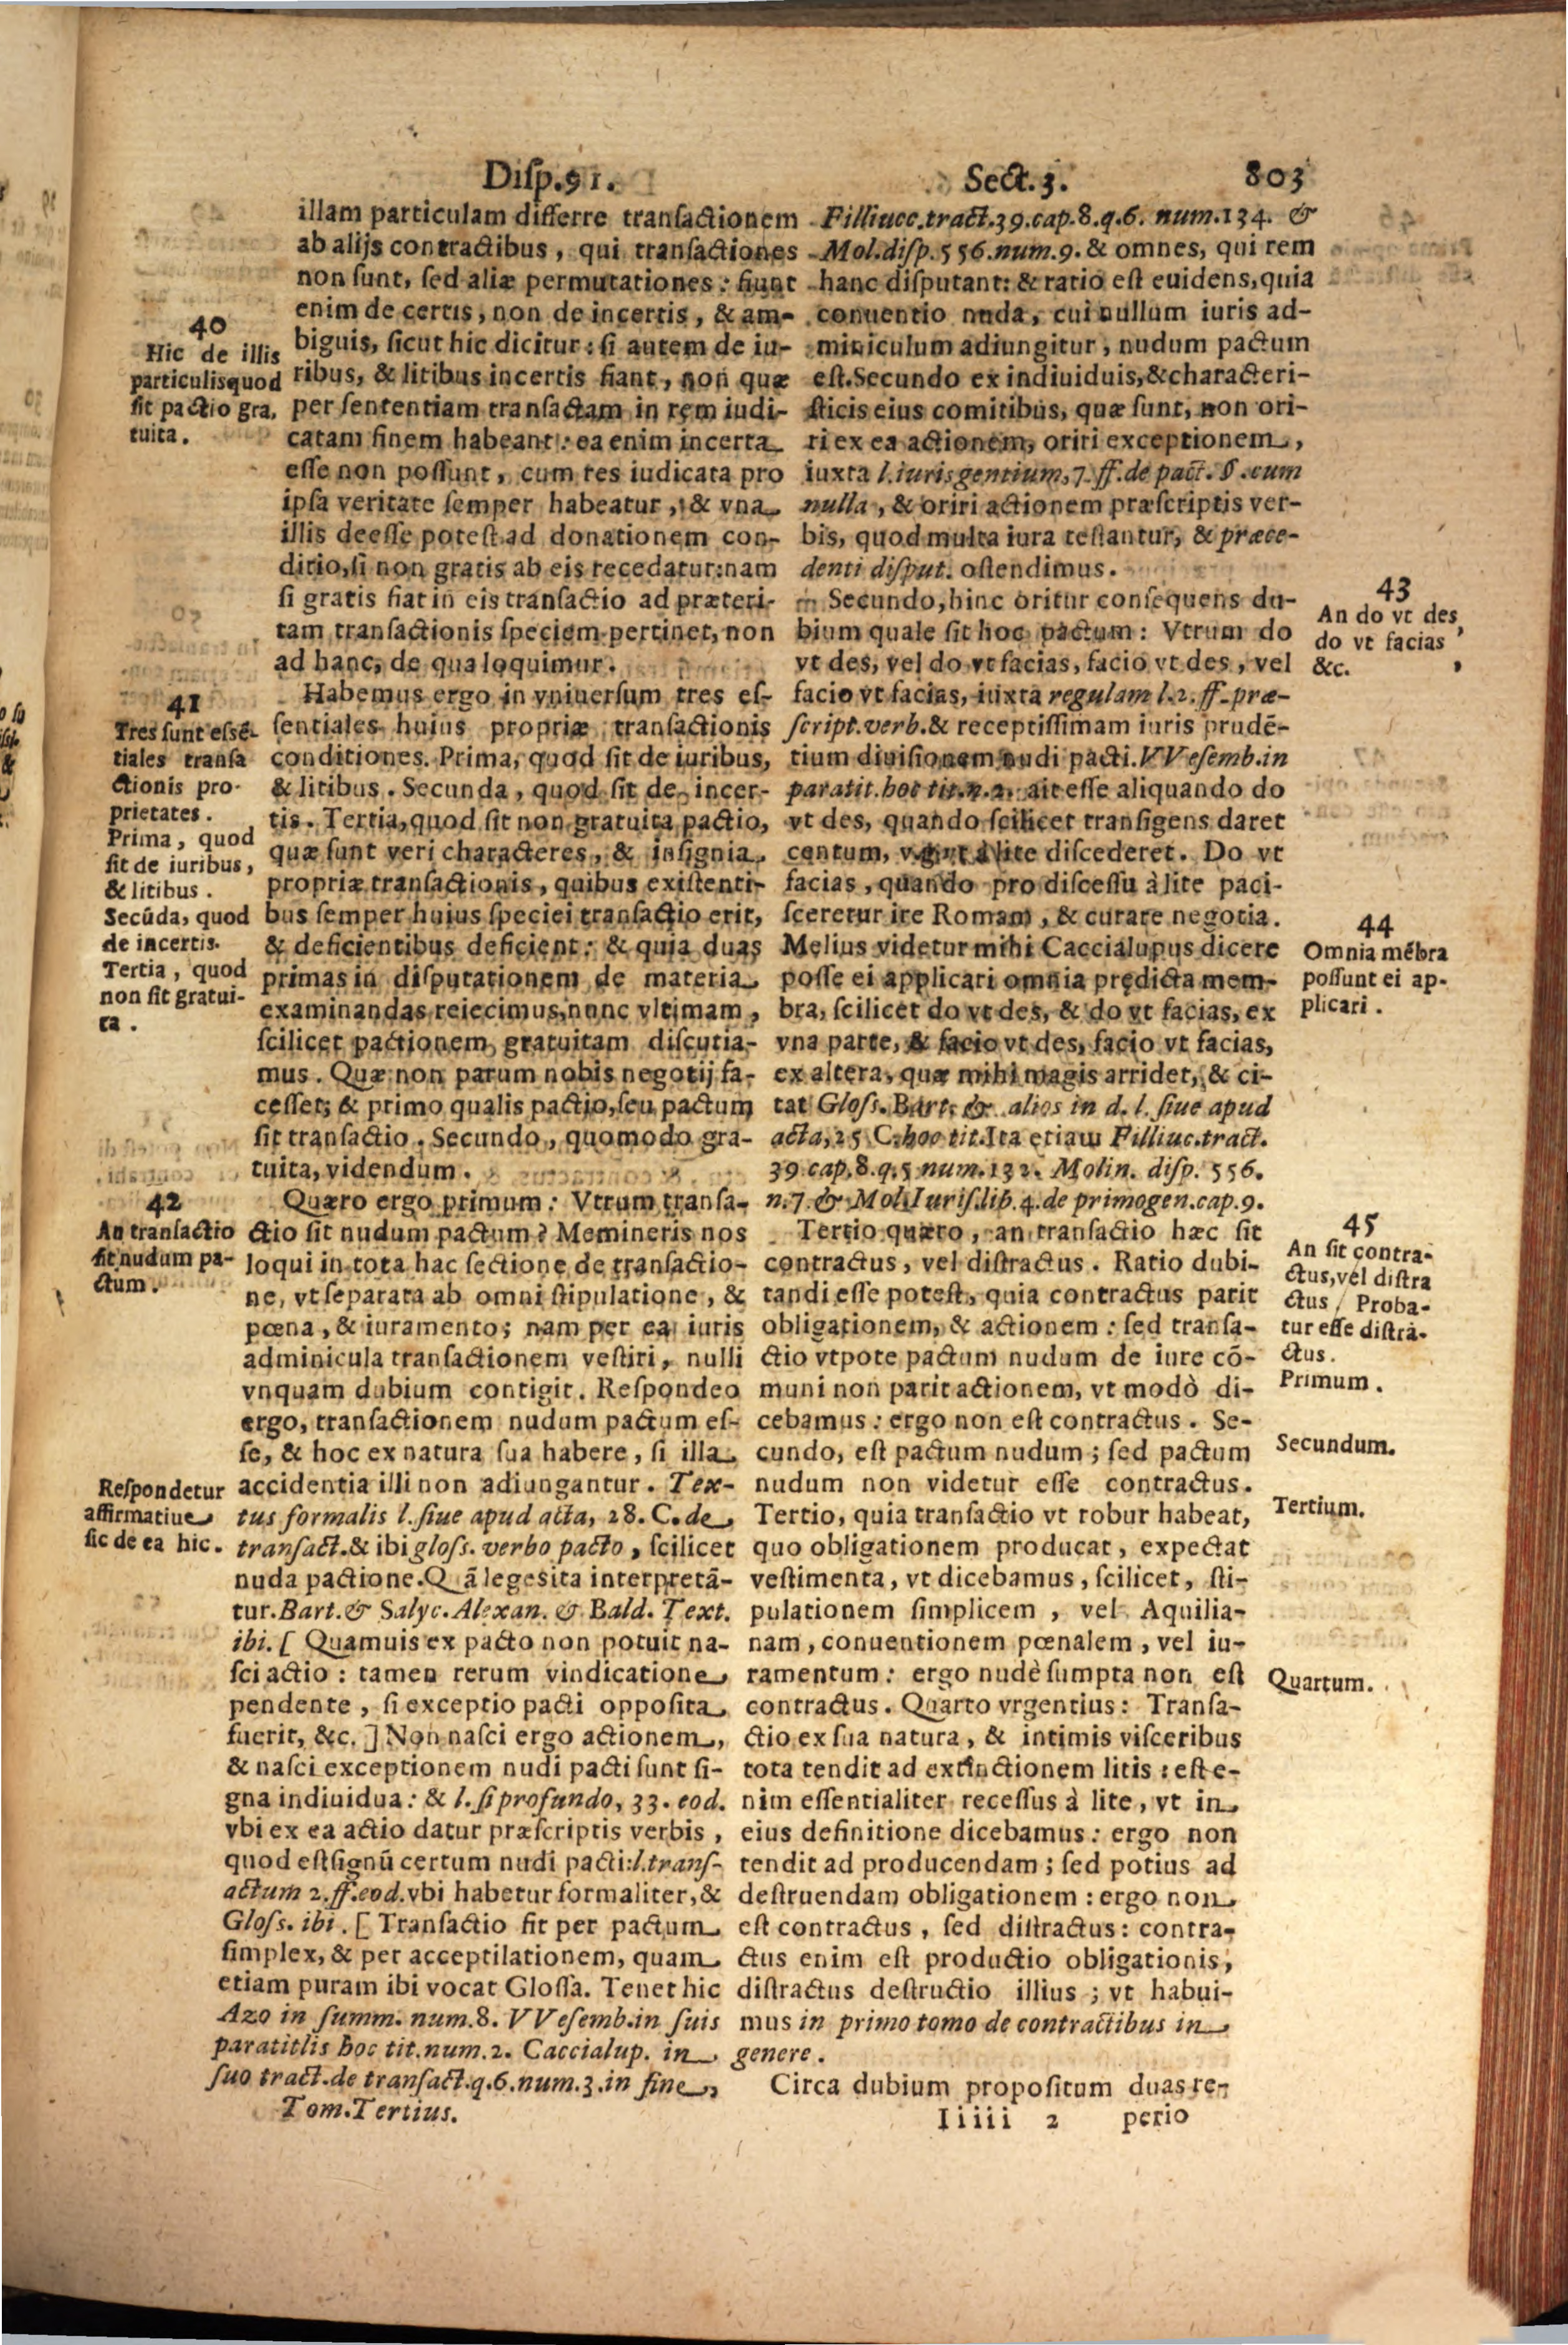 Disp.91. Sect.3. 803
illam particulam differre transactionem
ab alijs contractibus, qui transactiones
non sunt, sed aliæ permutationes: fiunt
enim de certis, non de incertis, & am-
biguis, sicut hic dicitur: si autem de iu-
ribus, & litibus incertis fiant, non quæ
per sententiam transactam in rem iudi-
catam finem habeant: ea enim incerta
esse non possunt, cum res iudicata pro
ipsa veritate semper habeatur, & vna
illis deesse potest ad donationem con-
ditio, si non gratis ab eis recedatur: nam
si gratis fiat in eis transactio ad præteri-
tam transactionis speciem pertinet, non
ad hanc, de qua loquimur.
Habemus ergo in vniuersum tres es-
sentiales huius propriæ transactionis
conditiones. Prima, quod sit de iuribus,
& litibus. Secunda, quod sit de incer-
tis. Tertia, quod sit non gratuita pactio,
quæ sunt veri characteres, & insignia
propriæ transactionis, quibus existenti-
bus semper huius speciei transactio erit,
& deficientibus deficient: & quia duas
primas in disputationem de materia
examinandas reiecimus, nunc vltimam,
scilicet pactionem gratuitam discutia-
mus. Quæ non parum nobis negotij fa-
cesset; & primo qualis pactio, seu pactum
sit transactio. Secundo, quomodo gra-
tuita, videndum.
Quæro ergo primum: Vtrum transa-
ctio sit nudum pactum? Memineris nos
loqui in tota hac sectione de transactio-
ne, vt separata ab omni stipulatione, &
pœna, & iuramento; nam per ea iuris
adminicula transactionem vestiri, nulli
vnquam dubium contigit. Respondeo
ergo, transactionem nudum pactum es-
se, & hoc ex natura sua habere, si illa
accidentia illi non adiungantur. Tex-
tus formalis l. siue apud acta, 28. C. de
transact. & ibi gloss. verbo pacto, scilicet
nuda pactione. Quā leges ita interpretā-
tur. Bart. & Salyc. Alexan. & Bald. Text.
ibi. [ Quamuis ex pacto non potuit na-
sci actio: tamen rerum vindicatione
pendente, si exceptio pacti opposita
fuerit, &c. ] Non nasci ergo actionem,
& nasci exceptionem nudi pacti sunt si-
gna indiuidua: & l. si profundo, 33. eod.
vbi ex ea actio datur præscriptis verbis,
quod est signū certum nudi pacti: l. trans-
actum 2. ff. eod. vbi habetur formaliter, &
Gloss. ibi. [ Transactio fit per pactum
simplex, & per acceptilationem, quam
etiam puram ibi vocat Glossa. Tenet hic
Azo in summ. num.8. VVesemb. in suis
paratitlis hoc tit. num.2. Caccialup. in
suo tract. de transact. q.6. num.3. in fine,
Tom. Tertius.
40
Hic de illis
particulis quod
sit pactio gra.
tuita.
41
Tres sunt essē-
tiales transa
ctionis pro-
prietates.
Prima, quod
sit de iuribus,
& litibus.
Secūda, quod
de incertis.
Tertia, quod
non sit gratui-
ta.
42
An transactio
sit nudum pa-
ctum.
Respondetur
affirmatiue
sic de ea hic.
Filliucc. tract.39. cap.8. q.6. num.134. &
Mol. disp.556. num.9. & omnes, qui rem
hanc disputant: & ratio est euidens, quia
conuentio nuda, cui nullum iuris ad-
miniculum adiungitur, nudum pactum
est. Secundo ex indiuiduis, & characteri-
sticis eius comitibus, quæ sunt, non ori-
ri ex ea actionem, oriri exceptionem,
iuxta l. iurisgentium, 7. ff. de pact. §. cum
nulla, & oriri actionem præscriptis ver-
bis, quod multa iura testantur, & præce-
denti disput. ostendimus.
Secundo, hinc oritur consequens du-
bium quale sit hoc pactum: Vtrum do
vt des, vel do vt facias, facio vt des, vel
facio vt facias, iuxta regulam l.2. ff. præ-
script. verb. & receptissimam iuris prudē-
tium diuisionem nudi pacti. VVesemb. in
paratit. hoc tit. n.2. ait esse aliquando do
vt des, quando scilicet transigens daret
centum, à lite discederet. Do vt
facias, quando pro discessu à lite paci-
sceretur ire Romam, & curare negotia.
Melius videtur mihi Caccialupus dicere
posse ei applicari omnia prędicta mem-
bra, scilicet do vt des, & do vt facias, ex
vna parte, & facio vt des, facio vt facias,
ex altera, quæ mihi magis arridet, & ci-
tat Gloss. Bart. & alios in d. l. siue apud
acta, 25 C. hoc tit. Ita etiam Filliuc. tract.
39 cap.8. q.5 num.132. Molin. disp. 556.
n.7. & Mol. Iuris. lib.4. de primogen. cap.9.
Tertio quæro, an transactio hæc sit
contractus, vel distractus. Ratio dubi-
tandi esse potest, quia contractus parit
obligationem, & actionem: sed transa-
ctio vtpote pactum nudum de iure cō-
muni non parit actionem, vt modò di-
cebamus: ergo non est contractus. Se-
cundo, est pactum nudum; sed pactum
nudum non videtur esse contractus.
Tertio, quia transactio vt robur habeat,
quo obligationem producat, expectat
vestimenta, vt dicebamus, scilicet, sti-
pulationem simplicem, vel Aquilia-
nam, conuentionem pœnalem, vel iu-
ramentum: ergo nudè sumpta non est
contractus. Quarto vrgentius: Transa-
ctio ex sua natura, & intimis visceribus
tota tendit ad extinctionem litis: est e-
nim essentialiter recessus à lite, vt in
eius definitione dicebamus: ergo non
tendit ad producendam; sed potius ad
destruendam obligationem: ergo non
est contractus, sed distractus: contra-
ctus enim est productio obligationis,
distractus destructio illius; vt habui-
mus in primo tomo de contractibus in
genere.
Circa dubium propositum duas re-
Iiiii 2 perio
43
An do vt des,
do vt facias
&c.
44
Omnia mēbra
possunt ei ap-
plicari.
45
An sit contra-
ctus, vel distra
ctus, Proba-
tur esse distra-
ctus.
Primum.
Secundum.
Tertium.
Quartum.